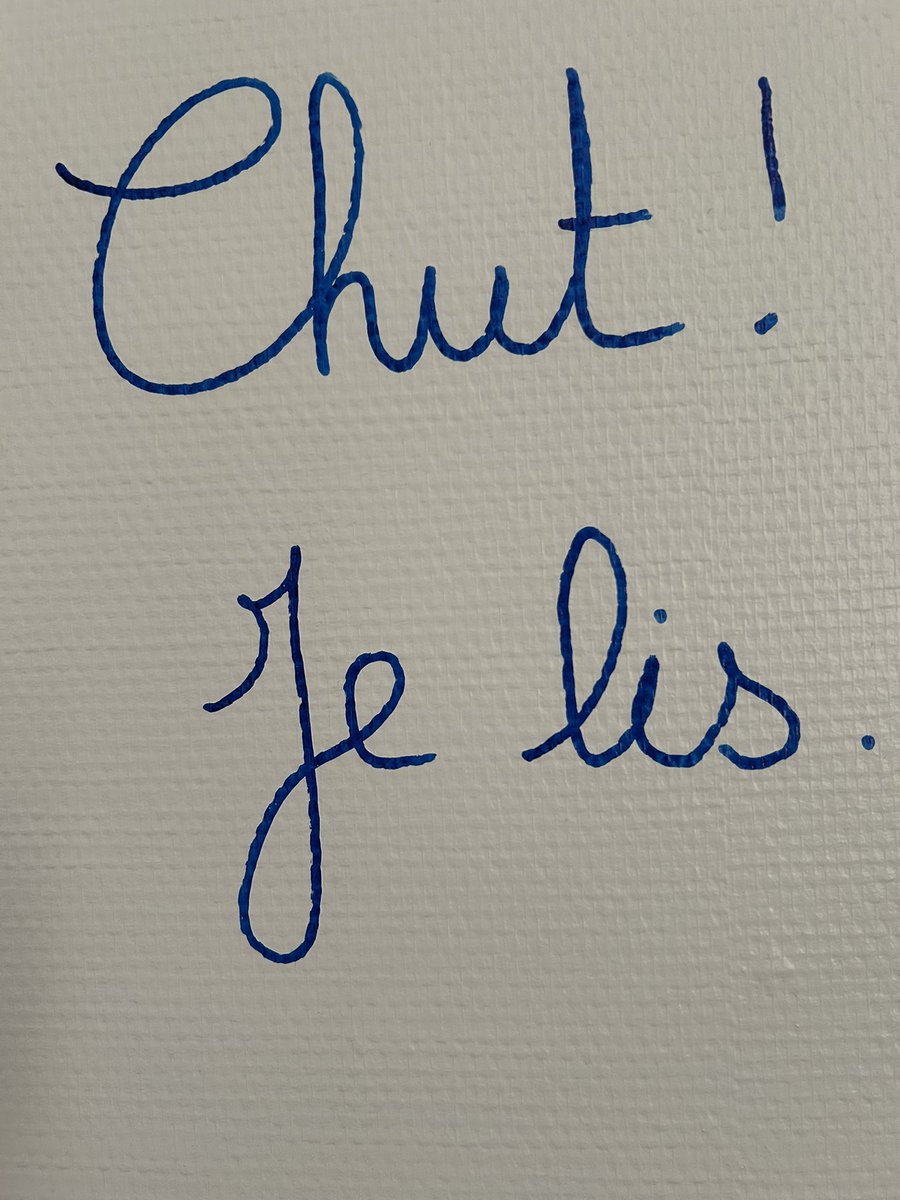 Chut !
Je lis.